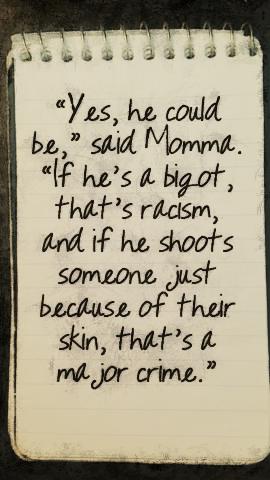 “Yes, he could
be,” said Momma.
“If he’s a bigot,
that’s racism,
and if he shoots
someone just
because of their
skin, that’s a
major crime.”